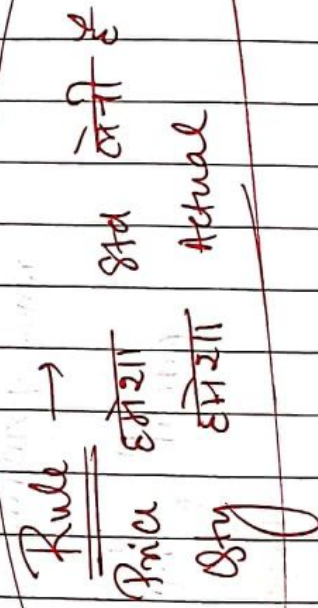 Rule →
Price हमेशा Std लेनी है
Qty हमेशा Actual